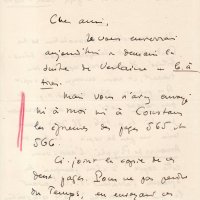 Cher ami,
Je vous enverrai
aujourd'hui ou demain la
suite de Verlaine
Mais vous n'avez envoyé
ni à moi ni à Constans
les épreuves des pages 565 et
566.
Ci-joint la copie de ces
deux pages. Pour ne pas perdre
du temps, en envoyant ces